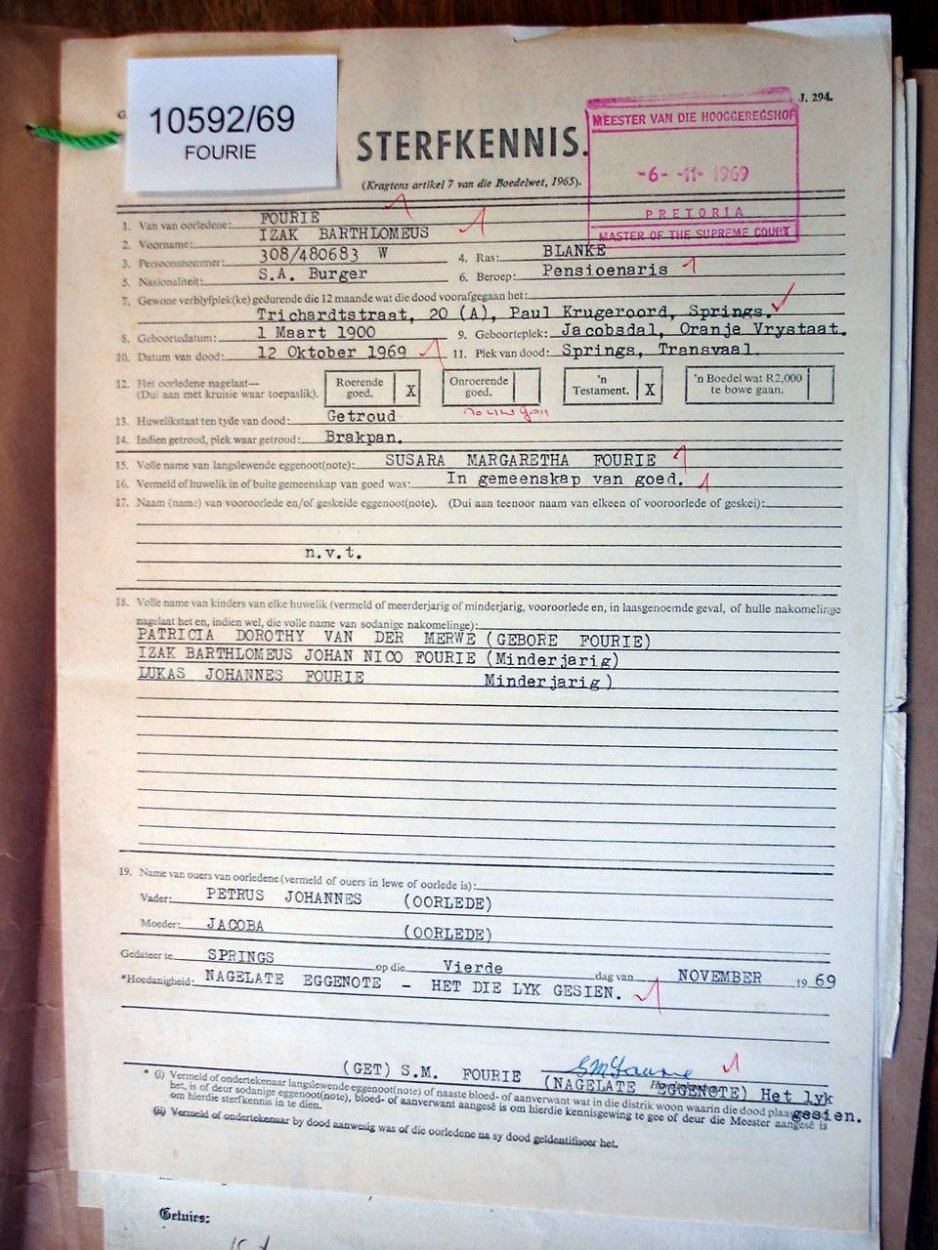 10592/69
FOURIE
G.
J. 294.
STERFKENNIS.
(Kragtens artikel 7 van die Boedelwet, 1965).
MEESTER VAN DIE HOOGGEREGSHOF
-6- -11- 1969
PRETORIA
MASTER OF THE SUPREME COURT
1. Van van oorledene: FOURIE
2. Voorname: IZAK BARTHLOMEUS
3. Persoonsnommer: 308/480683 W 4. Ras: BLANKE
5. Nasionaliteit: S.A. Burger 6. Beroep: Pensioenaris
7. Gewone verblyfplek(ke) gedurende die 12 maande wat die dood voorafgegaan het:
Trichardtstraat, 20 (A), Paul Krugeroord, Springs.
8. Geboortedatum: 1 Maart 1900 9. Geboorteplek: Jacobsdal, Oranje Vrystaat.
10. Datum van dood: 12 Oktober 1969 11. Plek van dood: Springs, Transvaal.
12. Het oorledene nagelaat—
(Dui aan met kruisie waar toepaslik).
Roerende goed. X
Onroerende goed.
'n Testament. X
'n Boedel wat R2,000 te bowe gaan.
13. Huwelikstaat ten tyde van dood: Getroud
14. Indien getroud, plek waar getroud: Brakpan.
15. Volle name van langslewende eggenoot(note): SUSARA MARGARETHA FOURIE
16. Vermeld of huwelik in of buite gemeenskap van goed was: In gemeenskap van goed.
17. Naam (name) van vooroorlede en/of geskeide eggenoot(note). (Dui aan teenoor naam van elkeen of vooroorlede of geskei):
n.v.t.
18. Volle name van kinders van elke huwelik (vermeld of meerderjarig of minderjarig, vooroorlede en, in laasgenoemde geval, of hulle nakomelinge
nagelaat het en, indien wel, die volle name van sodanige nakomelinge):
PATRICIA DOROTHY VAN DER MERWE (GEBORE FOURIE)
IZAK BARTHLOMEUS JOHAN NICO FOURIE (Minderjarig)
LUKAS JOHANNES FOURIE Minderjarig)
19. Name van ouers van oorledene (vermeld of ouers in lewe of oorlede is):
Vader: PETRUS JOHANNES (OORLEDE)
Moeder: JACOBA (OORLEDE)
Gedateer te SPRINGS op die Vierde dag van NOVEMBER 1969
*Hoedanigheid: NAGELATE EGGENOTE - HET DIE LYK GESIEN.
(GET) S.M. FOURIE
(NAGELATE EGGENOTE) Het lyk
gesien.
* (i) Vermeld of ondertekenaar langslewende eggenoot(note) of naaste bloed- of aanverwant wat in die distrik woon waarin die dood
het, is of deur sodanige eggenoot(note), bloed- of aanverwant aangesê is om hierdie kennisgewing te gee of deur die Meester aangesê is
om hierdie sterfkennis in te dien.
(ii) Vermeld of ondertekenaar by dood aanwesig was of die oorledene na sy dood geïdentifiseer het.
Getuies: